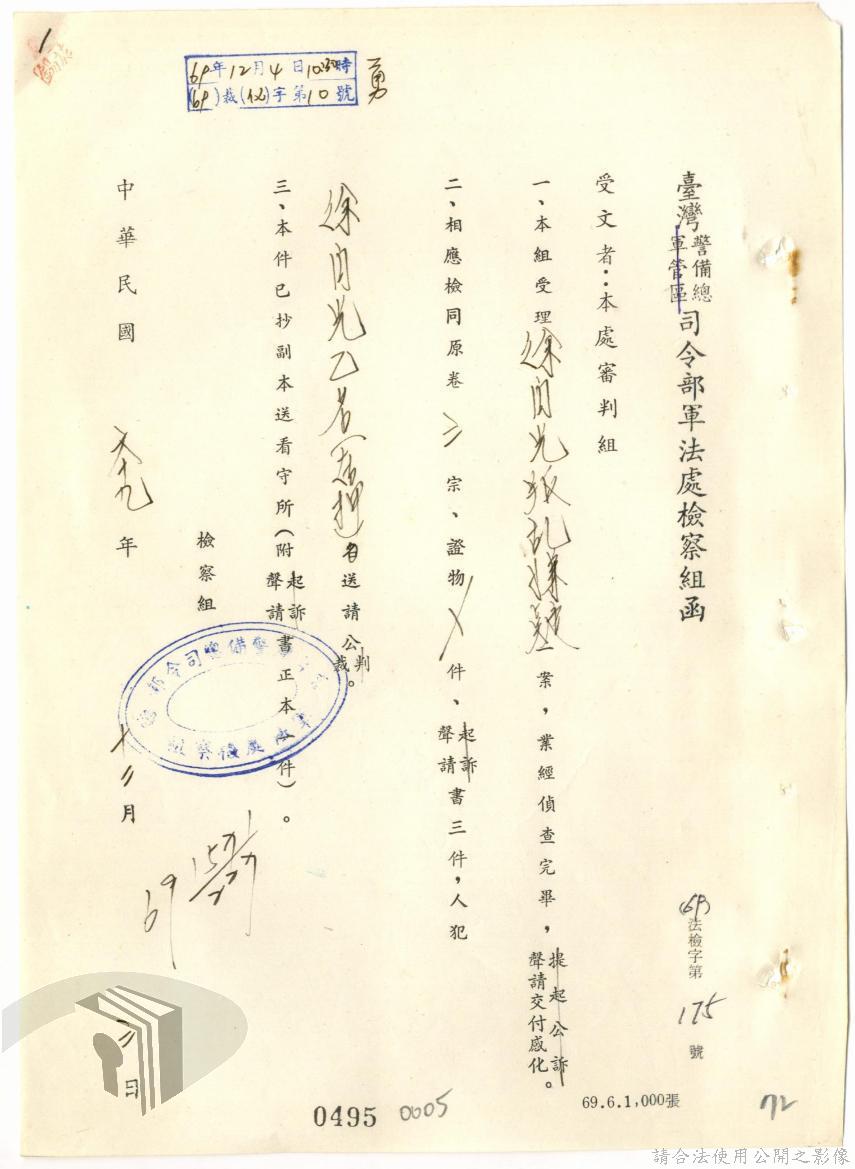 臺灣警備總軍管區司令部軍法處檢察組函
(69)法檢字第175號
受文者：本處審判組
一、本組受理徐光叛乱嫌疑一案，業經偵查完畢，提起公訴聲請交付感化。
二、相應檢同原卷二宗、證物件、起訴聲請書三件，人犯
徐光乙名(在押)送請公判裁。
三、本件已抄副本送看守所（附起訴聲請書正本一件）。
檢察組
警備總司令部
軍法處檢察組
中華民國六十九年十二月二日
69年12月4日10時
(69)裁(化)字第10號
勇
1
69
0495
0005
69.6.1,000張
72
請合法使用公開之影像